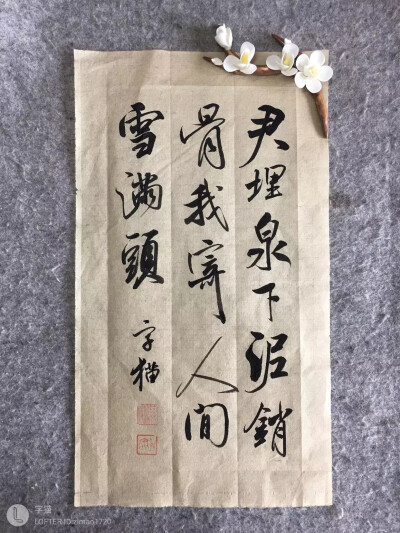 君埋泉下泥銷
骨我寄人間
雪滿頭
字猫